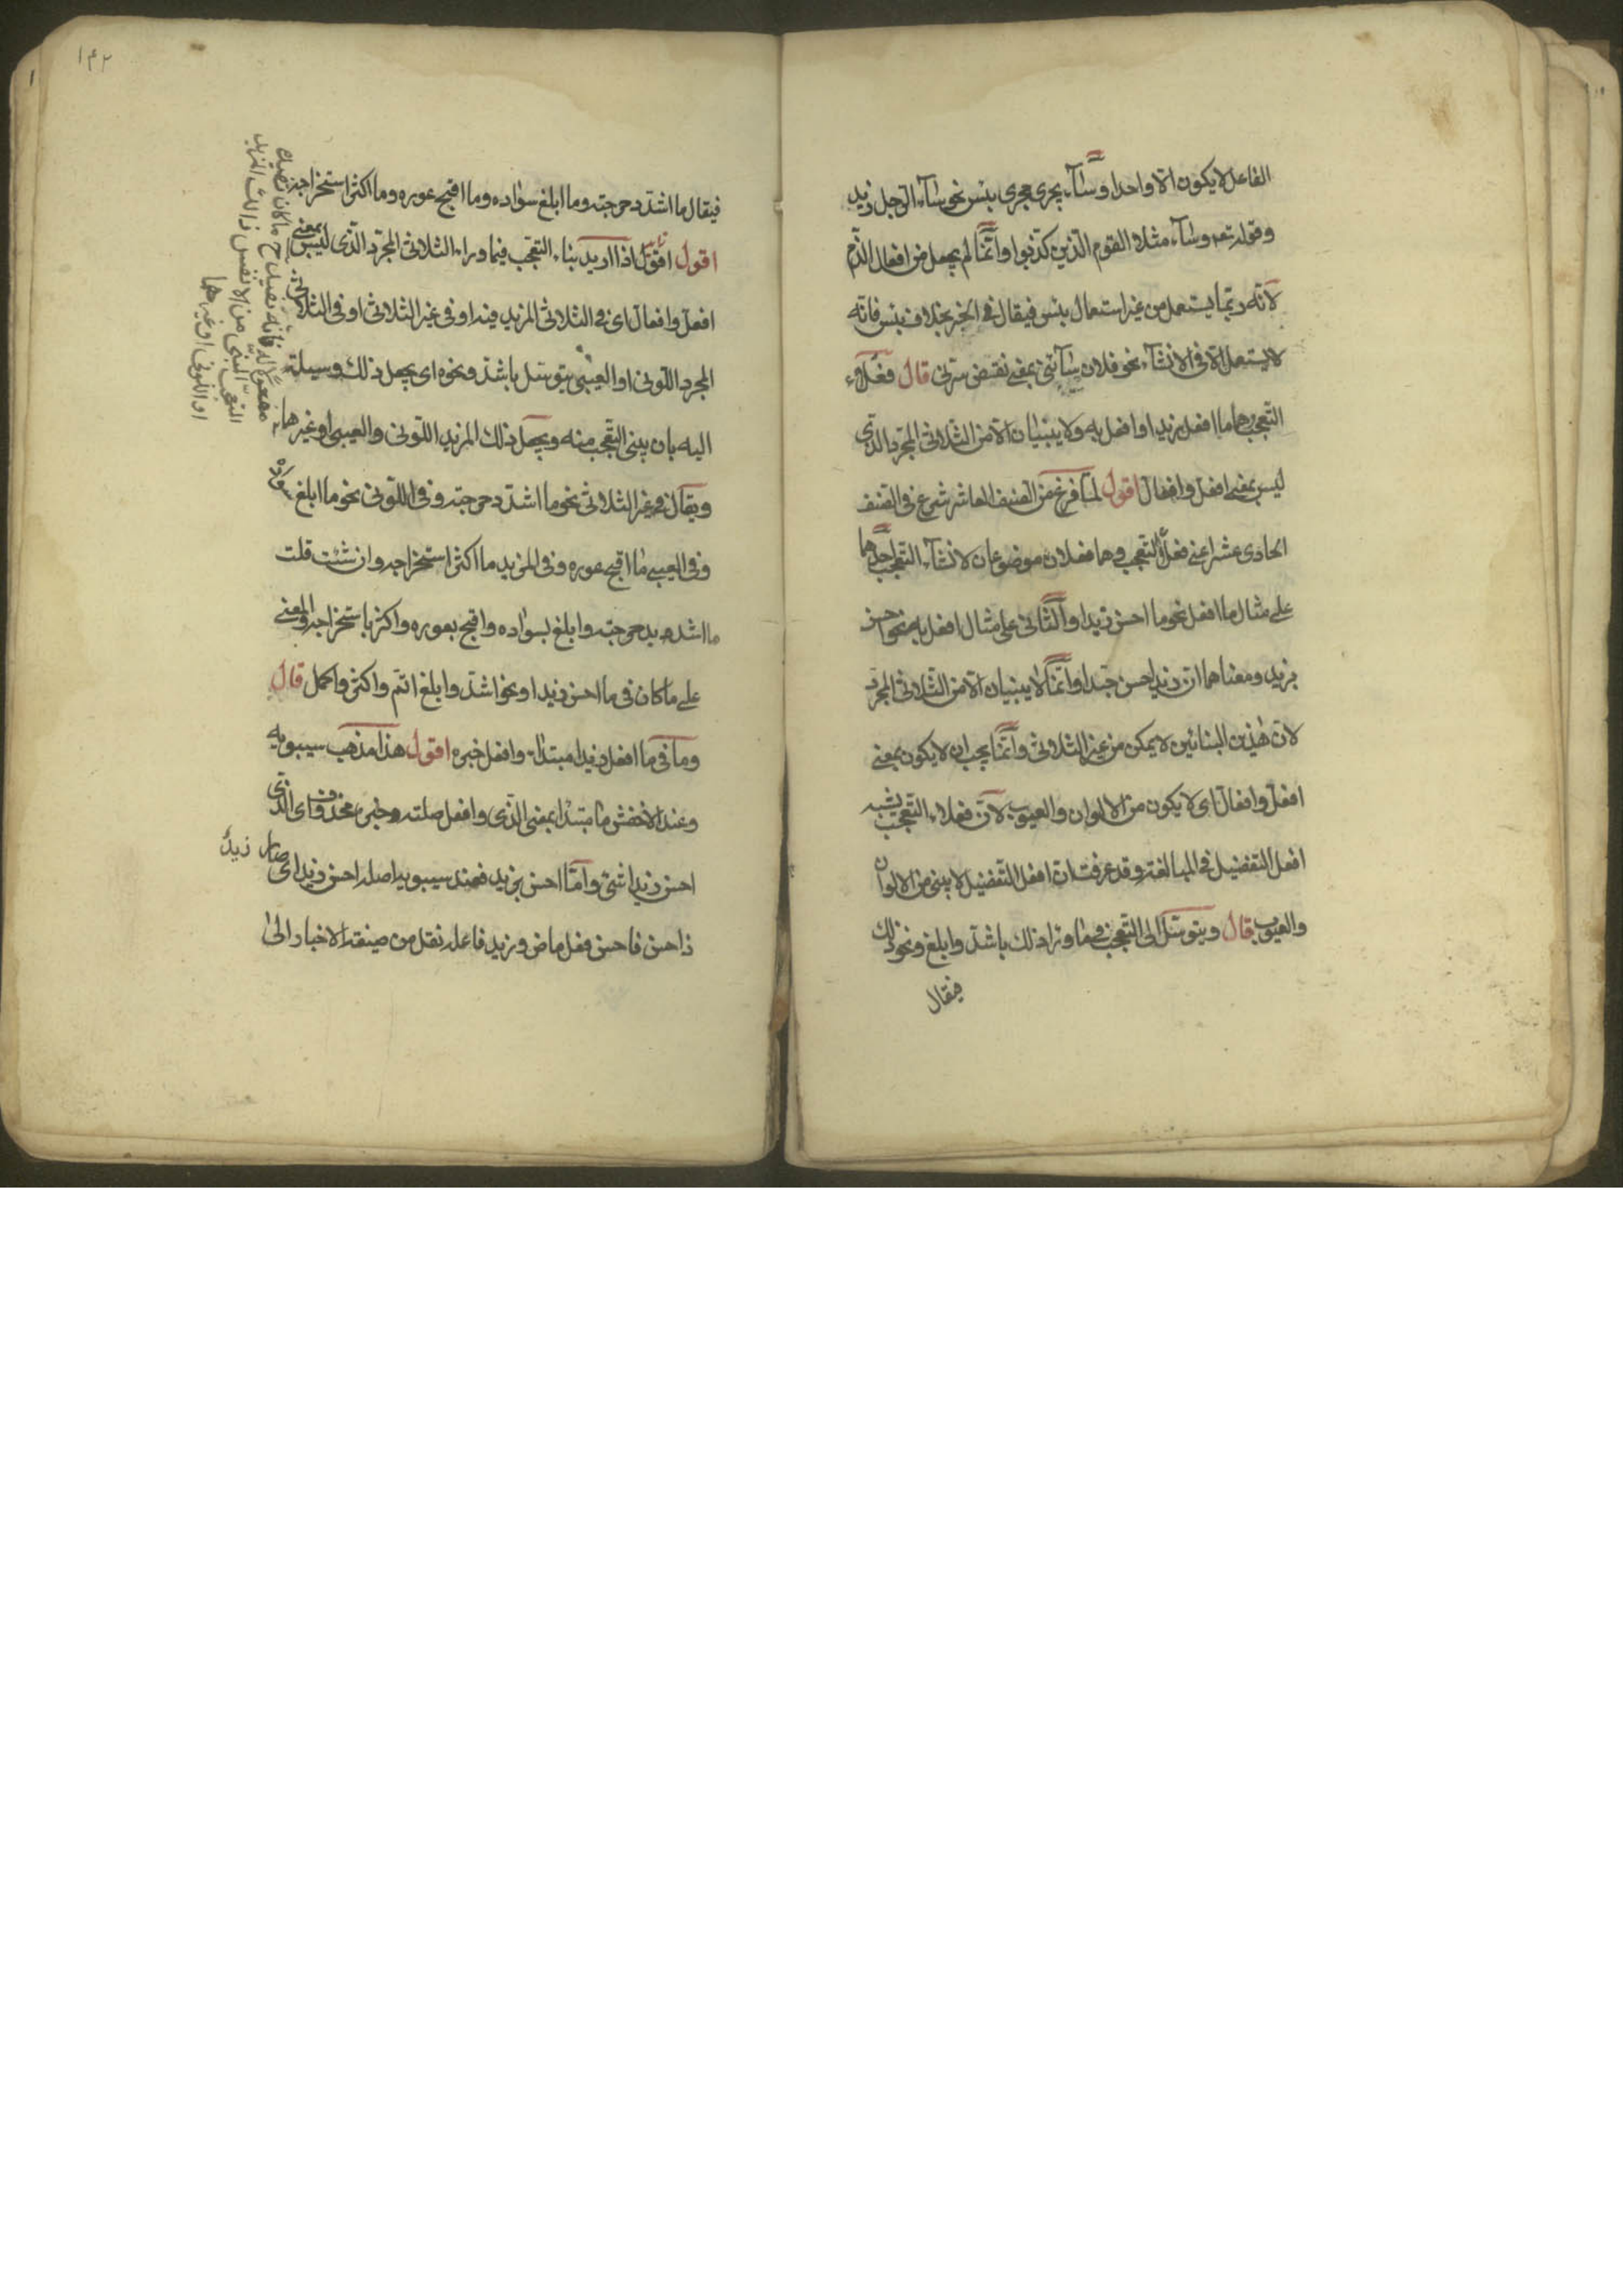 الفاعل لا يكون الّا واحدا وسٰآء يجرى مجرى بئس نحو سٰآء الرّجل زيد
وقوله تعه وسٰآء مثلا القوم الّذين كذّبوا وانّما لم يجعل من افعال الذّم
لانّه ربّما يستعمل من غير استعمال بئس فيقال فى الخبر بخلاف بئس فانّه
لا يستعمل الّا فى الانشآء نحو فلان سٰآئنى بمعنى نقيض سرّنى قال فعلاء
التّعجّب هما ما افعل زيدا وافعل به ولا يبنيان الّا من الثّلاثى المجرّد الّذى
ليس بمعنى افعلّ وافعالّ اقول لمّا فرغ من الصّنف العاشر شرع فى الصّنف
الحادى عشر اعنى فعلا التّعجب وهما فعلان موضوعان لانشآء التعجّب احدهما
على مثال ما افعل نحو ما احسن زيدا والثّانى على مثال افعل به نحو احسن
بزيد ومعناهما انّ زيدا حسن جدّا وانّما لا يبنيان الّا من الثّلاثى المجرّد
لانّ هٰذين البنائين لا يمكن من غير الثّلاثى وانّما يجب ان لا يكون بمعنى
افعلّ وافعالّ اى لا يكون من الالوان والعيوب لانّ فعلاء التّعجب يشبه
افعل التّفضيل فى المبالغة وقد عرفت انّ افعل التّفضيل لا يبنى من الالوان
والعيوب قال ويتوسّل الى التّعجب فيما وراء ذلك باشدّ وابلغ ونحو ذلك
فيقال
١٤٢
فيقال ما اشدّ دحرجته وما ابلغ سواده وما اقبح عوره وما اكثر استخراجه
اقول اذا اريد بناء التّعجب فيما وراء الثلاثى المجرّد الّذى ليس بمعنى
افعلّ وافعالّ اى فى الثلاثى المزيد فيه او فى غير الثلاثى او فى الثلاثى
المجرد اللّونى او العيبى يتوسّل باشدّ ونحوه اى يجعل ذلك وسيلة
اليه بان يبنى التعجّب منه ويجعل ذلك المزيد اللّونى والعيبى او غيرها
ويقال فى غير الثلاثى نحو ما اشدّ دحرجته وفى اللّونى نحو ما ابلغ سواده
وفى العيبى ما اقبح عوره وفى المزيد ما اكثر استخراجه وان شئت قلت
اشدد بدحرجته وابلغ بسواده واقبح بعوره واكثر باستخراجه والمعنى
على ما كان فى ما احسن زيدا ونحو اشدّ وابلغ اتمّ واكثر واكمل قال
وما فى ما افعل زيدا مبتداء وافعل خبره اقول هذا مذهب سيبويه
وعند الاخفش ما مبتدا بمعنى الّذى وافعل صلته وخبره محذوف اى الّذى
احسن زيدا شئ وامّا احسن بزيد فعند سيبويه اصله احسن زيد اى صار زيدٌ
ذا حسن فاحسن فعل ماض وزيد فاعله نقل من صيغة الاخبار الى
مفعولا له فانّه يصير ح ما كان قصيدة
التعجب المبنى من الانفس ذالك المزيد
او اللونى او غيرهما